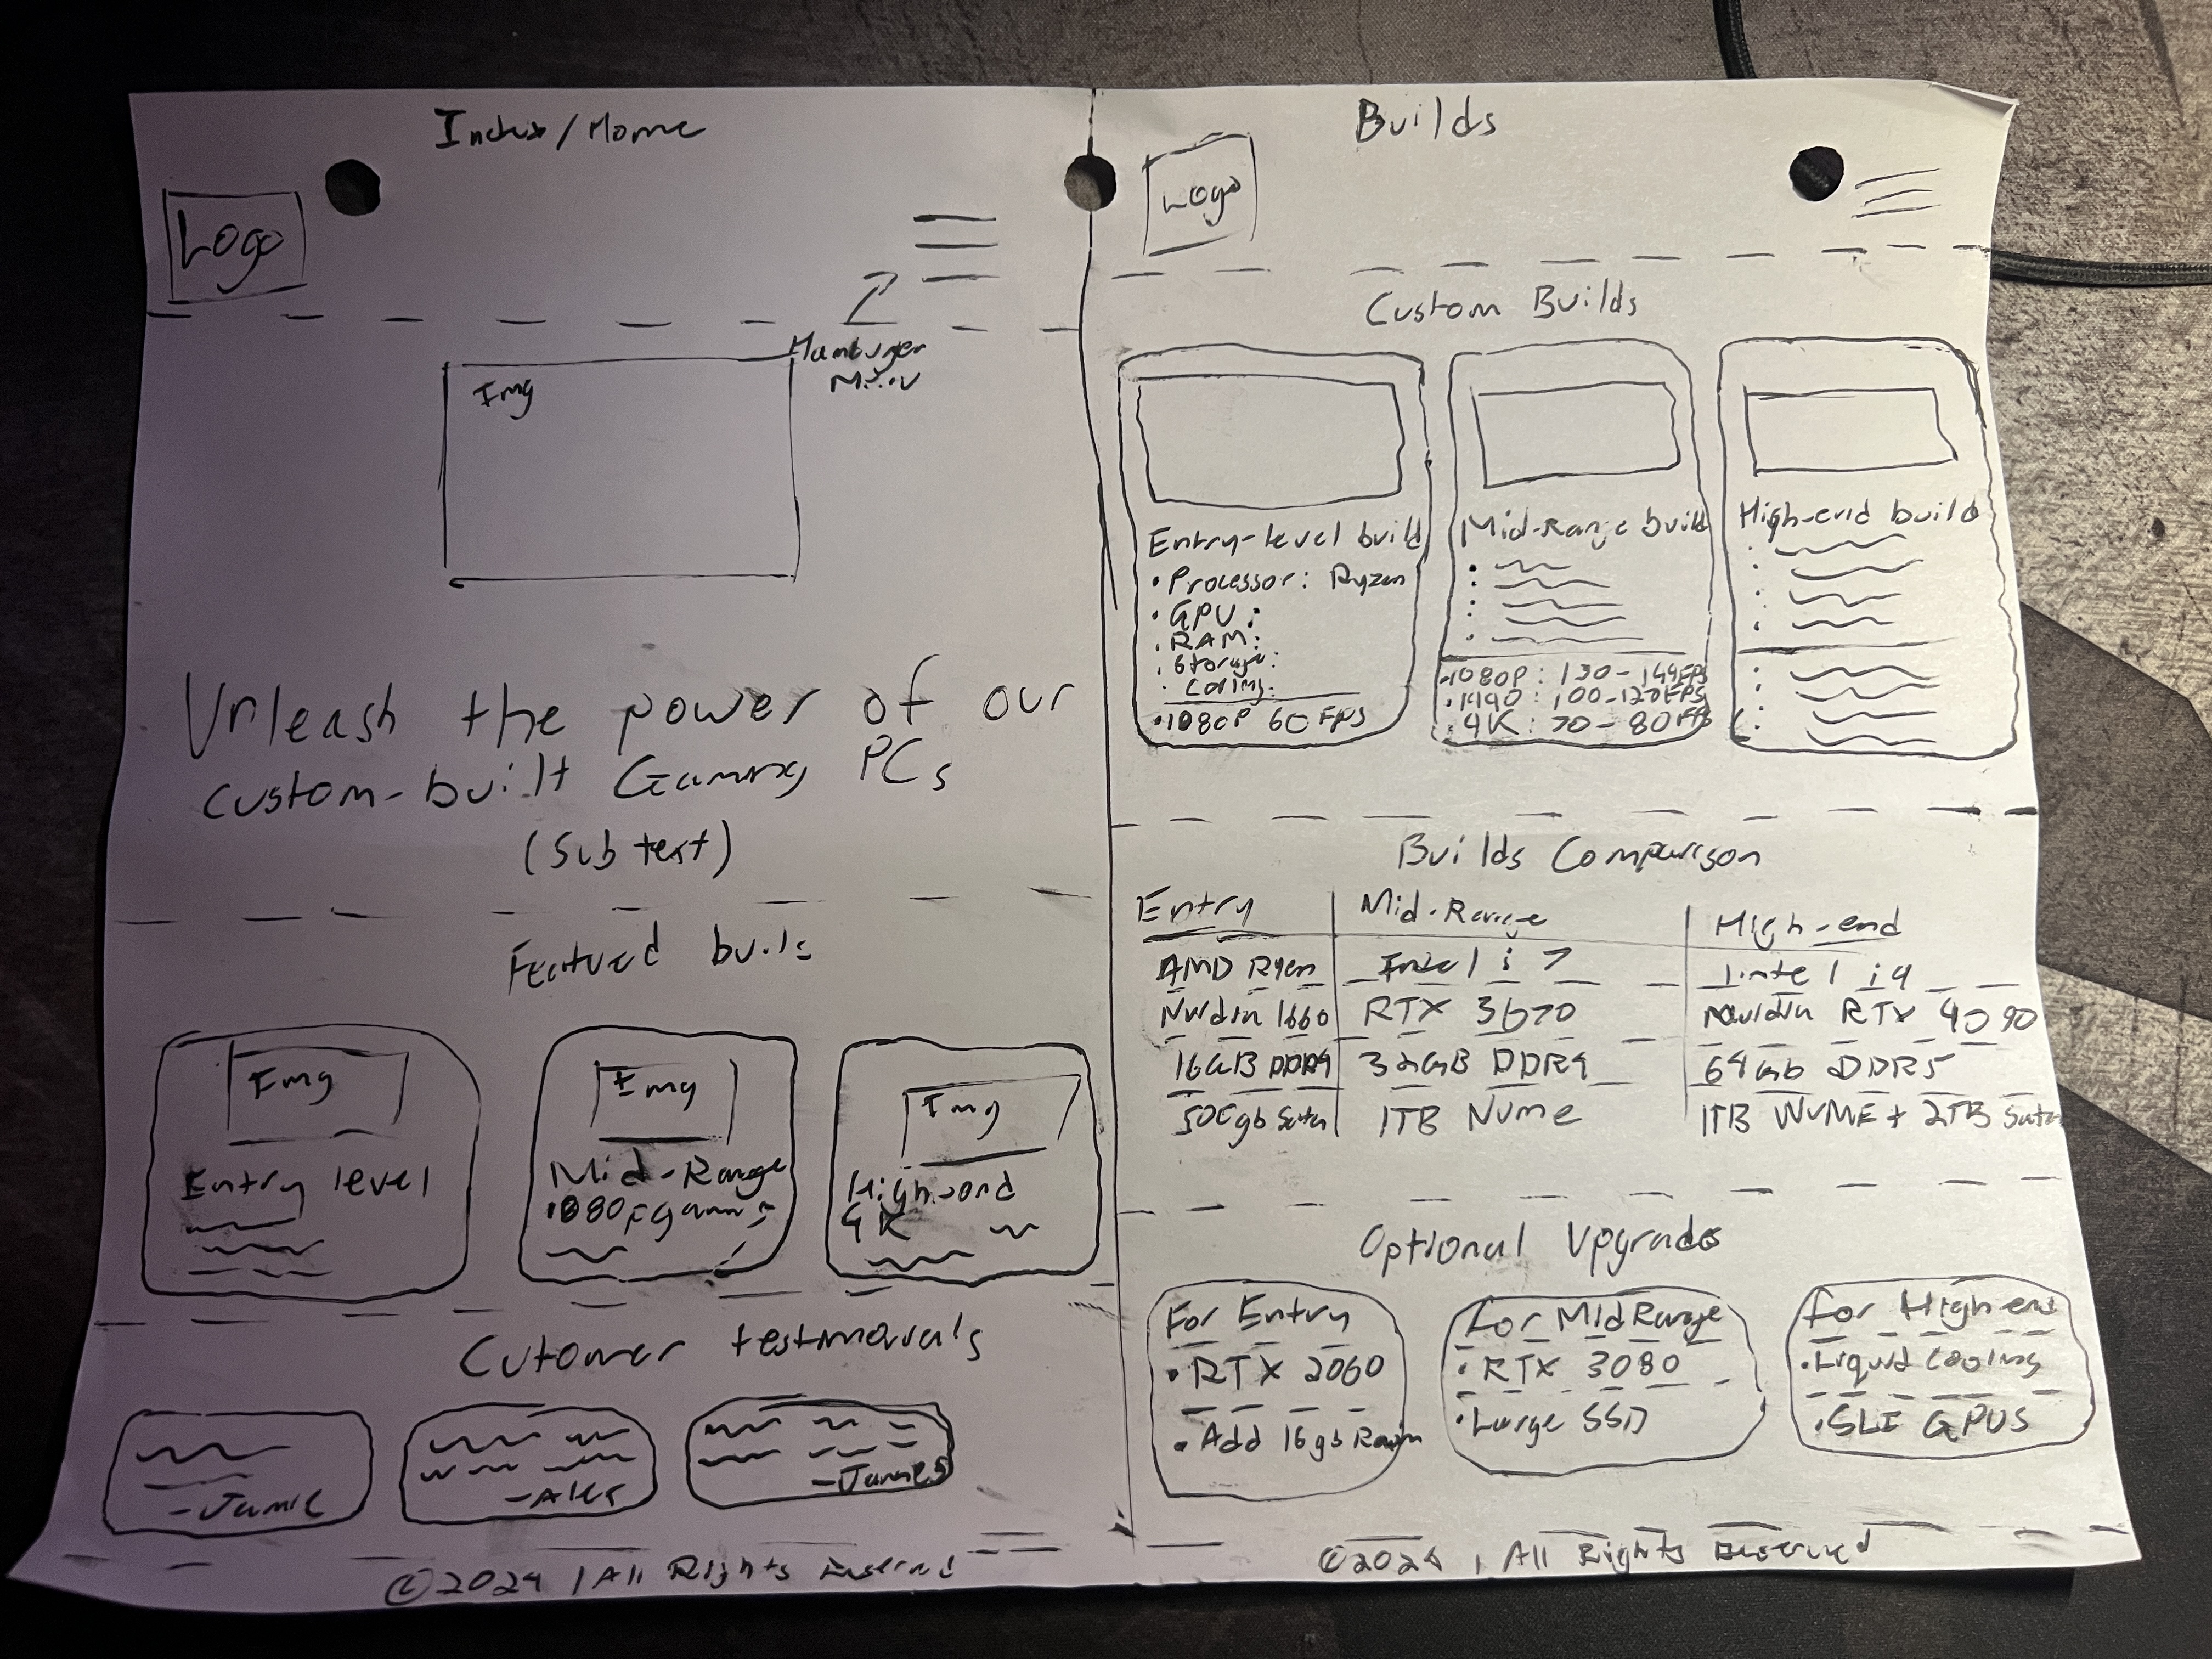 Index/Home
Logo
Hamburger
Menu
Img
Unleash the power of our
custom-built Gaming PCs
(Sub text)
Featured builds
Img
Entry level
Img
Mid-Range
1080p gaming
Img
High-end
4K
Cutomer testimonials
-Jamie
-Alex
-James
©2024 | All Rights Reserved
Builds
Logo
Custom Builds
Entry-level build
• Processor: Ryzen
• GPU:
• RAM:
• Storage:
•
• 1080P 60FPS
Mid-Range build
• 1080P: 130-144FPS
• 1440: 100-120FPS
• 4K: 70-80FPS
High-end build
Builds Comparison
Entry | Mid-Range | High-end
AMD Ryzen | Intel i7 | Intel i9
Nvidia 1660 | RTX 3070 | Nvidia RTX 4090
16GB DDR4 | 32GB DDR4 | 64gb DDR5
500gb Sata | 1TB Nvme | 1TB NVME + 2TB Sata
Optional Upgrades
For Entry
• RTX 2060
• Add 16gb Ram
For Mid Range
• RTX 3080
• Large SSD
For High-end
• Liquid Cooling
• SLI GPUS
©2024 | All Rights Reserved